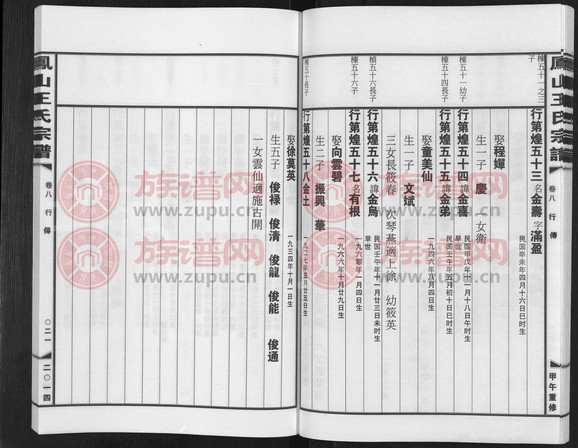 鳳山王氏宗譜
卷八 行傳
甲午重修
棟五十一之三子
行第煌五十三 名金壽 字滿盈
民国辛未年四月十六日巳时生
娶程嬋
生一子 慶 一女衛
棟五十一幼子
行第煌五十四 諱金喜
民国甲戌年十一月十八日午时生
早世
棟五十四長子
行第煌五十五 諱金弟
民国壬午年五月初十日巳时生
娶童美仙
一九四六年八月四日生
生一子 文斌
三女長筱春 次琴燕適上徐 幼筱英
楨五十六長子
行第煌五十六 諱金烏
民国壬午年十一月廿三日未时生
早世
棟五十六子
行第煌五十七 名有根
一九六零年一月四日生
娶向雲碧
一九六六年十月廿九日生
生二子 振興 華
棟五十長子
行第煌五十八 金土
一九二七年五月廿五日生
娶徐莫英
一九三四年十月一日生
生五子 俊禄 俊清 俊龍 俊能 俊通
一女雲仙適施古開
鳳山王氏宗譜
卷八 行傳
〇二一
二〇一四
族谱网
www.zupu.cn
族谱网
www.zupu.cn
族谱网
www.zupu.cn
族谱网
www.zupu.cn